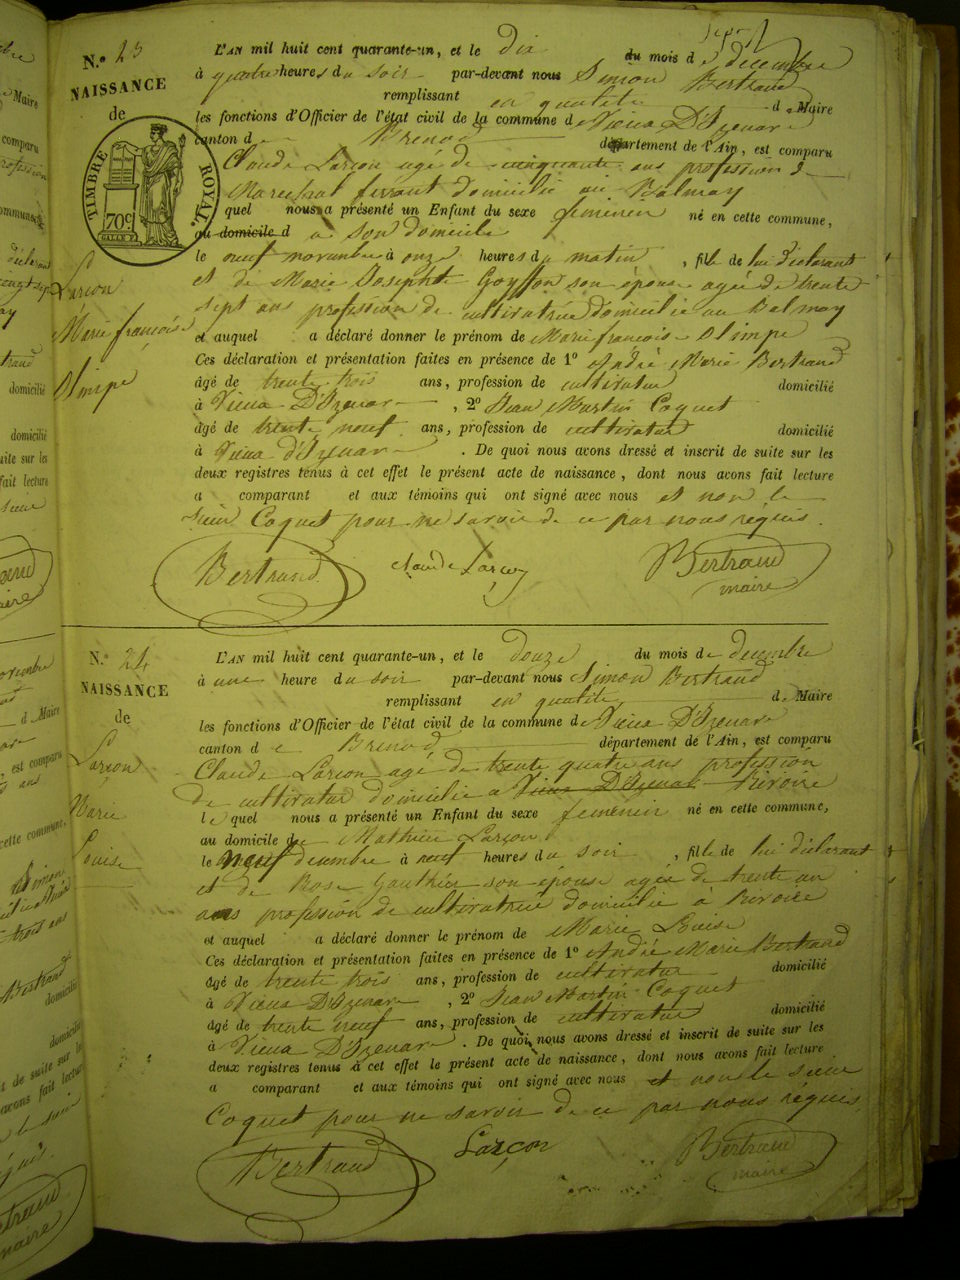 N.º 23
NAISSANCE
de
TIMBRE ROYAL.
70 c.
Larçon
Marie françoise
Olimpe
L'AN mil huit cent quarante-un, et le dix du mois de decembre
à quatre heures du soir par-devant nous Simon Bertrand
remplissant en qualité d Maire
les fonctions d'Officier de l'état civil de la commune de Vieux D'Izenave
canton de Brenod département de l'Ain, est comparu
Claude Larçon agé de cinquante ans profession de
Marechal ferrant domicilié au Balmay
quel nous a présenté un Enfant du sexe feminin né en cette commune,
au domicile d a son domicile
le neuf novembre à onze heures du matin, fille de lui déclarant
et de Marie Josephte Goyffon son épouse agée de trente
sept ans profession de cultivatrice domicilié au Balmay
et auquel a déclaré donner le prénom de Marie françoise Olimpe
Ces déclaration et présentation faites en présence de 1º André Marie Bertrand
âgé de trente trois ans, profession de cultivateur domicilié
à Vieux D'Izenave, 2º Jean Martin Coquet
âgé de trente neuf ans, profession de cultivateur domicilié
à Vieux d'Izenave. De quoi nous avons dressé et inscrit de suite sur les
deux registres tenus à cet effet le présent acte de naissance, dont nous avons fait lecture
a comparant et aux témoins qui ont signé avec nous et non le
sieur Coquet pour ne savoir de ce par nous réquis.
Bertrand Claude Larçon Bertrand
maire
N.º 24
NAISSANCE
de
Larçon
Marie
Louise
L'AN mil huit cent quarante-un, et le douze du mois de decembre
à une heure du soir par-devant nous Simon Bertrand
remplissant en qualité d Maire
les fonctions d'Officier de l'état civil de la commune de Vieux D'Izenave
canton de Brenod département de l'Ain, est comparu
Claude Larçon agé de trente quatre ans profession
de cultivateur domicilié à Vieux D'Izenave Rivoire
le quel nous a présenté un Enfant du sexe feminin né en cette commune,
au domicile de Mathieu Larçon
le neuf decembre à neuf heures du soir, fille de lui déclarant
et de Rose Gauthier son épouse agée de trente un
ans profession de cultivatrice domicilié à Rivoire
et auquel a déclaré donner le prénom de Marie Louise
Ces déclaration et présentation faites en présence de 1º André Marie Bertrand
âgé de trente trois ans, profession de cultivateur domicilié
à Vieux D'Izenave, 2º Jean Martin Coquet
âgé de trente neuf ans, profession de cultivateur domicilié
à Vieux D'Izenave. De quoi nous avons dressé et inscrit de suite sur les
deux registres tenus à cet effet le présent acte de naissance, dont nous avons fait lecture
a comparant et aux témoins qui ont signé avec nous et non le sieur
Coquet pour ne savoir de ce par nous réquis
Bertrand Larçon Bertrand
maire